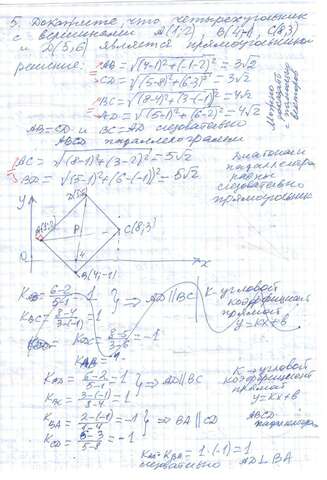 5. Докажите, что четырехугольник
с вершинами A(1,2), B(4,-1), C(8,3)
и D(5,6) является прямоугольником
решение: AB = √(4-1)²+(-1-2)² = 3√2
CD = √(5-8)²+(6-3)² = 3√2
BC = √(8-4)²+(3-(-1))² = 4√2
AD = √(5-1)²+(6-2)² = 4√2
Можно
с помощью
векторов
AB=CD и BC=AD следовательно
ABCD параллелограмм
AC = √(8-1)²+(3-2)² = 5√2
BD = √(5-1)²+(6-(-1))² = 5√2
диагонали
параллелограмма
равны
следовательно
прямоугольник
y
P
C(8,3)
4
x
B(4,-1)
=1
} ⇒ AD ∥ BC
K-угловой
коэффициент
прямой
y=kx+b
K BC =
= 1
K DC =
= -1
K AD = 6-2/5-1 = 1
K BC = 3-(-1)/8-4 = 1
} ⇒ AD ∥ BC
K-угловой
коэффициент
прямой
y=kx+b
K BA = 2-(-1)/1-4 = -1
K CD =
= -1
} ⇒ BA ∥ CD
ABCD-
параллелограмм
K AD · K BA = 1·(-1) =
следовательно AD ⊥ BA